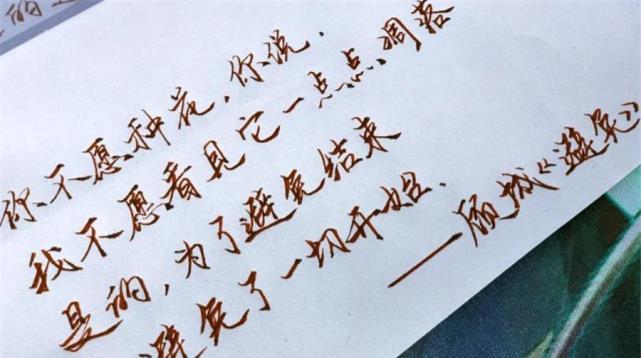 的
你不愿种花,你说,
我不愿看见它一点点凋落
是的,为了避免结束
避免了一切开始.
——顾城《避免》